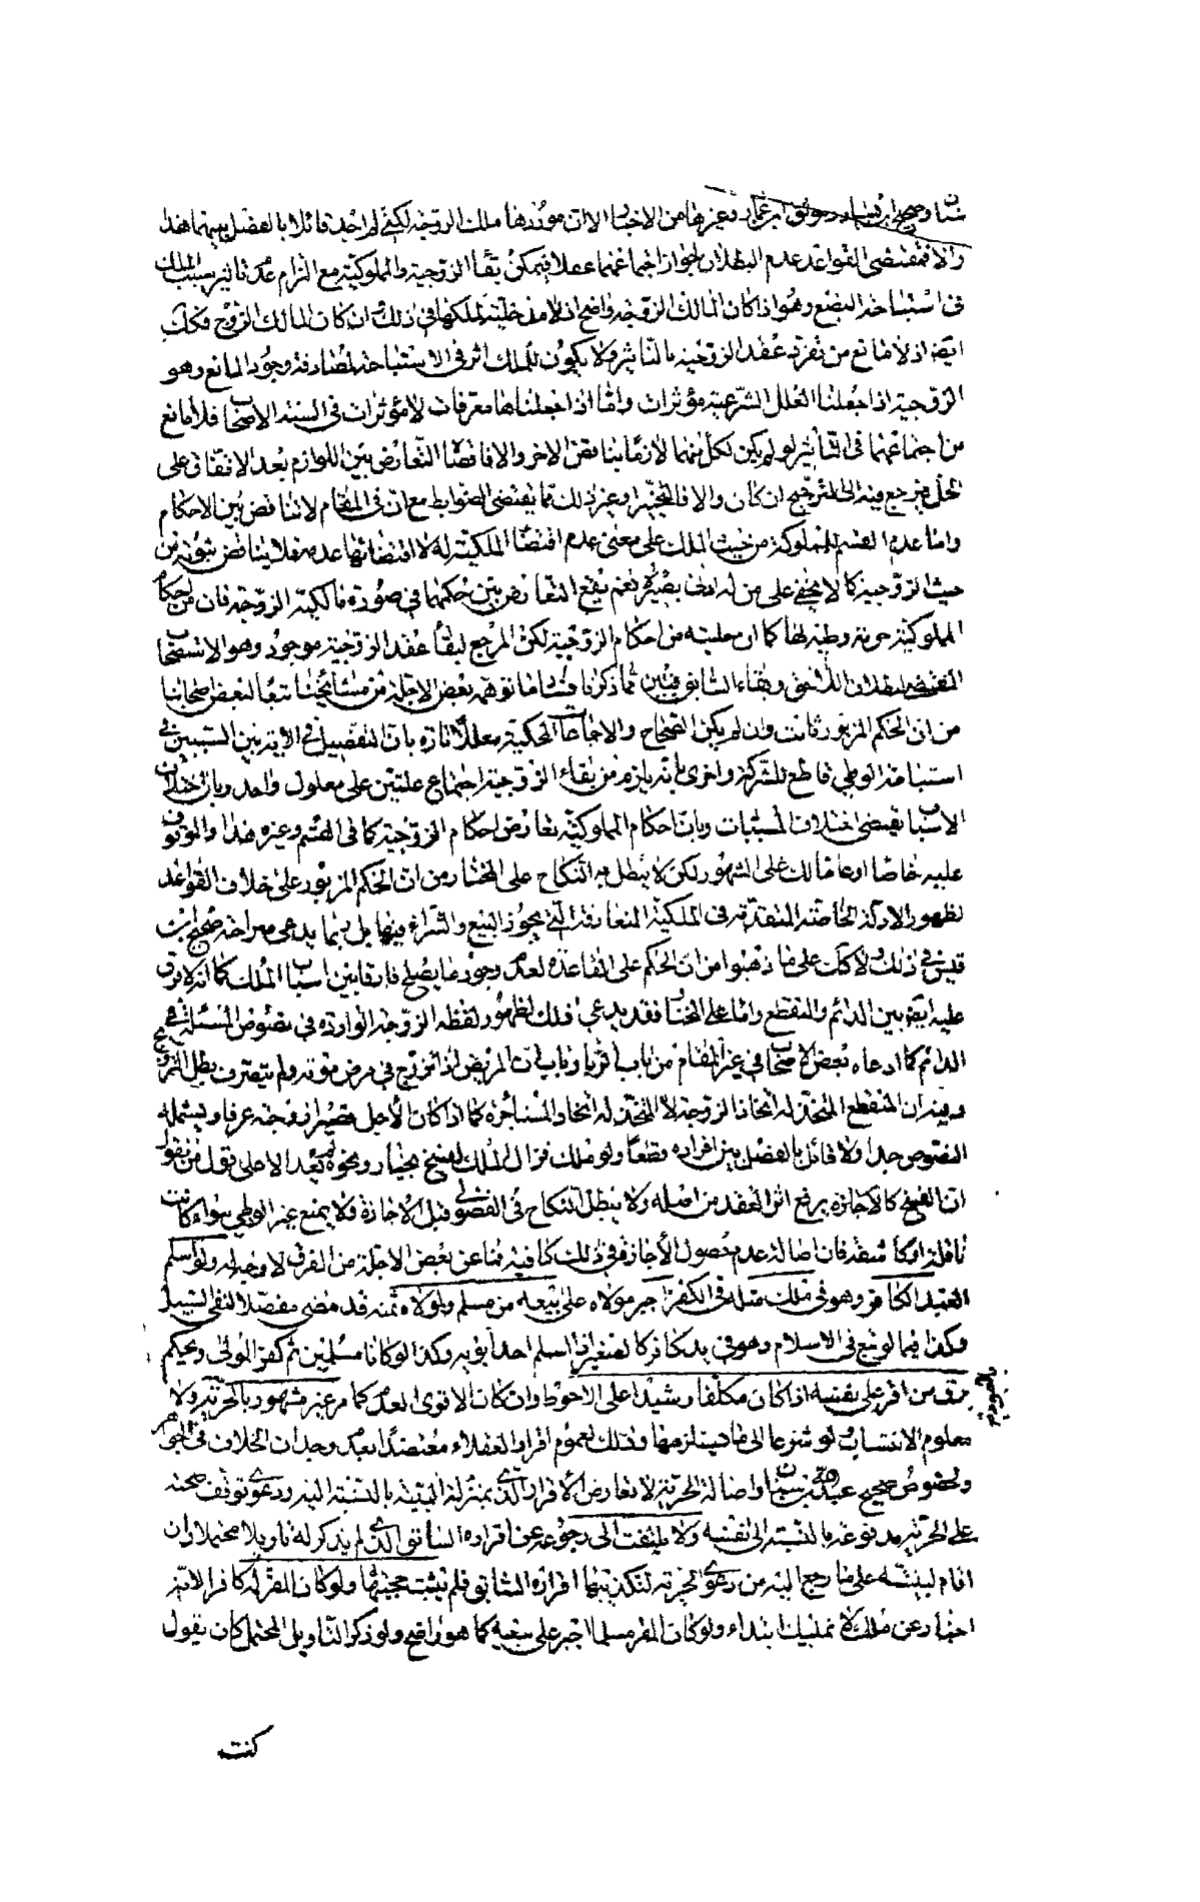 سنان وصحيح ابن قيس وموثق ابن عمار وغيرها من الاخبار الا ان موردها ملك الزوجة لكنى لم اجد قائلا بالفصل بينهما هذا
والا فمقتضى القواعد عدم البطلان لجواز اجماعهما عقلا فيمكن بقاء الزوجية والمملوكية مع التزام عدم تاثير سبب الملك
فى استباحة البضع وهو اذا كان المالك الزوجة واضح اذ لا مدخلية لملكها فى ذلك وان كان المالك الزوج فكك
ايضا اذ لا مانع من تفرد عقد الزوجية بالتاثير ولا يكون للملك اثر فى الاستباحة لمصادفة وجود المانع وهو
الزوجية اذا جعلنا العلل الشرعية مؤثرات واما اذا جعلناها معرفات لا مؤثرات فى السنة الاصحاب فلا مانع
من اجتماعهما فى التأثير لو لم يكن لكل منهما لازما يناقض الاخر والا فاقصاه التعارض بين اللوازم بعد الاتفاق على
المحل فيرجع فيه الى الترجيح ان كان والا فالتخيير او غير ذلك مما يقتضى الضوابط مع ان فى المقام لا تناقض بين الاحكام
واما عدم القسم للمملوكة من حيث الملك على معنى عدم اقتضاء الملكية له لا اقتضائها عدمه فلا يناقض ثبوته من
حيث الزوجية كما لا يخفى على من له ادنى بصيرة نعم يقع التعارض بين حكمهما فى صورة مالكية الزوجة فان من احكام
المملوكية حرمة وطيه لها كما ان حليته من احكام الزوجية لكن المرجح لبقاء عقد الزوجية موجود وهو الاستصحاب
المقتضى لبطلان اللاحق وبقاء السابق فتبين مما ذكرنا فساد ما توهمه بعض الاجلة من مشائخنا تبعا لبعض اصحابنا
من ان الحكم المزبور ثابت وان لم يكن الصحاح والاجماعات المحكية معللا تارة بان التفصيل فى الاية بين السببين فى
استباحة الوطى قاطع للشركة واخرى بانه يلزم من بقاء الزوجية اجتماع علتين على معلول واحد وبان اختلاف
الاسباب يقتضى اختلاف المسببات وبان احكام المملوكية تعارض احكام الزوجية كما فى القسم وغيره هذا والموقوف
عليه خاصا او عاما لك على المشهور لكن لا يبطل به النكاح على المختار من ان الحكم المزبور على خلاف القواعد
لظهور الادلة الخاصة المتقدمة فى الملكية المتعارفة التى يجوز البيع والشراء فيها بل ربما يدعى صراحة صحيح ابن
قيس فى ذلك ولا كك على ما ذهبوا من ان الحكم على القاعدة لعدم وجود ما يصلح فارقا بين اسباب الملك كما انه لا فرق
عليه ايضا بين الدائم والمنقطع واما على المختار فقد يدعى ذلك لظهور لفظة الزوجة الواردة فى نصوص المسئلة فى
الدائم كما ادعاه بعض الاصحاب فى غير المقام من باب الربا وباب ان المريض اذا تزوج فى مرض موته ولم يتصرف بطل التزويج
وفيه ان المنقطع المتخذ له اتخاذ الزوجة لا المتخذ له اتخاذ المستأجرة كما اذا كان الاجل قصيرا زوجة عرفا ويشمله
النصوص جدا ولا قائل بالفصل بين افراده قطعا ولو ملك فزال الملك لفسخ بخيار ونحوه لم يعد الا على قول من يقول
ان الفسخ كالاجازة يرفع اثر العقد من اصله ولا يبطل النكاح فى الفضولى قبل الاجازة فلا يمنع عنه الوطى سواء كانت
ناقلة او كاشفة فان اصالة عدم حصول الاجازة فى ذلك كافية فما عن بعض الاجلة من الفرق لا وجه له ولو اسلم
العبد الكافر وهو فى ملك مثله فى الكفر اجبر مولاه على بيعه من مسلم ولمولاه ثمنه قد مضى مفصلا لنفى السبيل
وكذا فيما لو نبع فى الاسلام وهو فى يد كافر كالصغير اذا اسلم احد ابويه وكذا لو كانا مسلمين ثم كفر المولى ويحكم
برق من اقر على نفسه اذا كان مكلفا رشيدا على الاحوط وان كان الاقوى العدم كما مر غير مشهور بالحرية ولا
معلوم الانتساب لو شرعا الى ما حيث لزمها وذلك لعموم اقرار العقلاء معتضدا بعدم وجدان الخلاف فى الجواهر
ولخصوص صحيح عبد الله بن سنان واصالة الحرية لا تعارض الاقرار الذى بمنزلة البينة بالنسبة اليه ودعوى توقف صحته
على الحرية مدفوعة بالنسبة الى نفسه ولا يلتفت الى رجوعه عن اقراره السابق الذى لم يذكر له تاويلا محتملا وان
اقام البينة على ما رجع اليه من دعوى الحرية لتكذيبها اقراره السابق فلم يثبت حجيتها ولو كان المقر له كافرا لانه
اخبار عن ملك لا تمليك ابتداء ولو كان المقر مسلما اجبر على بيعه كما هو واضح ولو ذكر التاويل المحتمل كان يقول
كنت